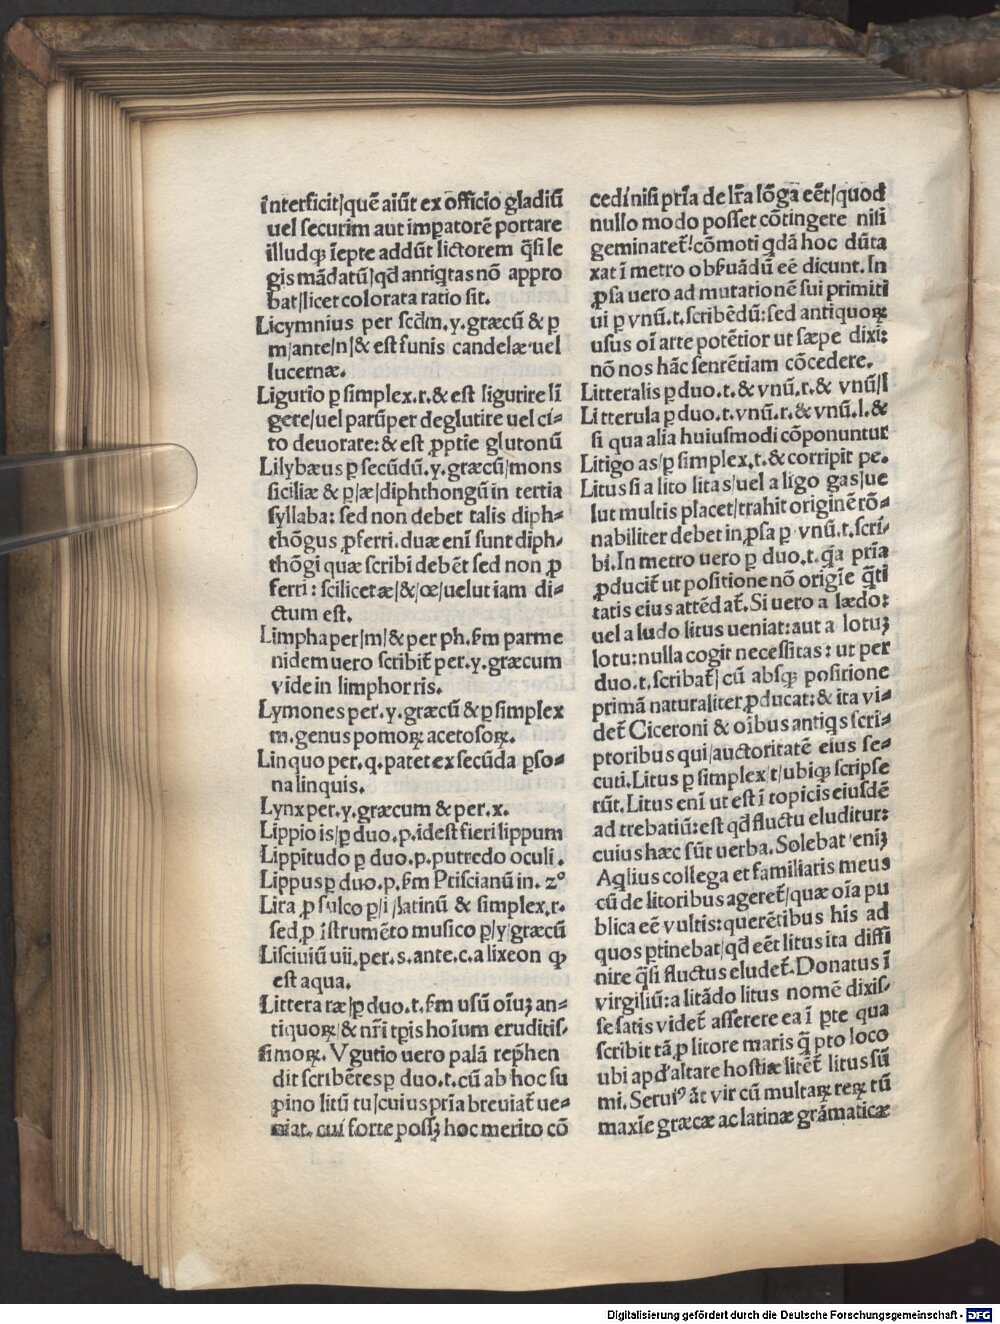 īnterficit/quē aiūt ex officio gladiū
uel securim aut imꝑatorē portare
illudqꝫ īepte addūt lictorem q̄si le
gis mādatū/qd̄ antiqtas nō appro
bat/licet colorata ratio sit.
Licymnius per scd̄m.y.græcū & ꝑ
m/ante/n/& est funis candelæ uel
lucernæ.
Ligurio ꝑ simplex.r.& est ligurire li
gere/uel parūper deglutire uel ci-
to deuorare: & est ꝓptie glutonū
Lilybæus ꝑ secūdū.y.græcū/mons
siciliæ & ꝑ/æ/diphthongū in tertia
syllaba: sed non debet talis diph-
thōgus ꝓferri.duæ eni sunt diph-
thōgi quæ scribi debēt sed non ꝓ
ferri: scilicet æ/&/œ/uelut iam di-
ctum est.
Limpha per/m/& per ph.s̄m parme
nidem uero scribit̄ per.y.græcum
vide in limphorris.
Lymones per.y.græcū & ꝑ simplex
m.genus pomoꝝ acetosoꝝ.
Linquo per.q.patet ex secūda ꝑso-
na linquis.
Lynx per.y.græcum & per.x.
Lippio is/ꝑ duo.p.idest fieri lippum
Lippitudo ꝑ duo.p.putredo oculi.
Lippus ꝑ duo.p.s̄m Priscianū in.2°
Lira ꝓ sulco ꝑ/i/latinū & simplex.r.
sed ꝓ īstrumēto musico ꝑ/y/græcū
Lisciuiū uii.per.s.ante.c.a lixeon qꝫ
est aqua.
Littera ræ/ꝑ duo.t.s̄m usū oīuꝫ an-
tiquoꝝ/& nr̄i tꝑis hoīum eruditis-
simoꝝ. Vgutio uero palā repħen
dit scribētes ꝑ duo.t.cū ab hoc su
pino litū tu/cuius prīa breuiat̄ ue-
niat. cui forte possꝫ hoc merito cō
cedi nisi prīa de lr̄a lōga eēt/quod
nullo modo posset cōtingere nisi
geminaret̄!cōmoti qdā hoc dūta
xat ī metro obs̄uādū eē dicunt. In
ꝓsa uero ad mutationē sui primiti
ui ꝑ vnū.t.scribēdū: sed antiquoꝝ
usus oī arte potētior ut sæpe dixi:
nō nos hāc sentētiam cōcedere.
Litteralis ꝑ duo.t.& vnū.r.& vnū/l
Litterula ꝑ duo.t.vnū.r.& vnū.l.&
si qua alia huiusmodi cōponuntur
Litigo as/ꝑ simplex.t.& corripit pe.
Litus si a lito litas/uel a ligo gas/ue
lut multis placet/trahit originē rō-
nabiliter debet in ꝓsa ꝑ vnū.t.scri-
bi. In metro uero ꝑ duo.t.q̄a prīa
ꝓducit̄ ut positione nō origīe q̄ti
tatis eius attēdat̄. Si uero a lædo:
uel a ludo litus ueniat: aut a lotuꝫ
lotu: nulla cogit necessitas: ut per
duo.t.scribat̄/ cū absqꝫ positione
primā naturaliter ꝓducat: & ita vi-
det̄ Ciceroni & oībus antiqs scri-
ptoribus qui/auctoritatē eius se-
cuti. Litus ꝑ simplex/t/ubiqꝫ scripse
rūt. Litus eni ut est ī topicis eiusdē
ad trebatiū: est qd̄ fluctu eluditur:
cuius hæc sūt uerba. Solebat eniꝫ
Aqlius collega et familiaris meus
cū de litoribus ageret̄/quæ oīa pu
blica eē vultis: querētibus his ad
quos ꝑtinebat/qd̄ eēt litus ita diffi
nire q̄si fluctus eludet̄. Donatus ī
virgiliū: a litādo litus nomē dixis-
se satis videt̄ asserere ea ī ꝑte qua
scribit tā ꝓ litore maris q̄ pro loco
ubi apd' altare hostiæ litēt̄ litus sū
mi. Seruiꝰ āt vir cū multaꝝ reꝝ tū
maxīe græcæ ac latinæ grāmaticæ
Digitalisierung gefördert durch die Deutsche Forschungsgemeinschaft - DFG